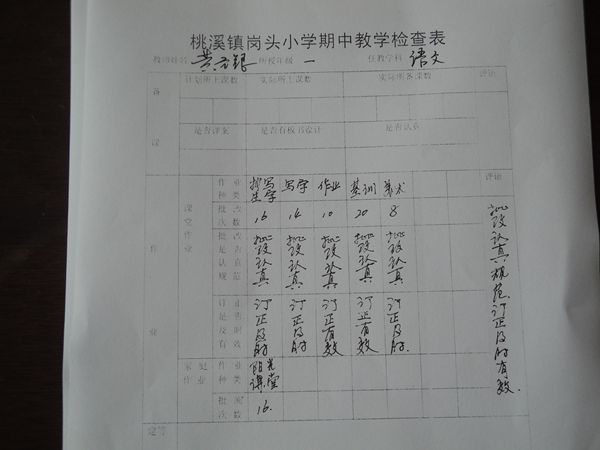 桃溪镇岗头小学期中教学检查表
教师姓名 黄 银 所授年级 一 任教学科 语文
备课
计划所上课数 实际所上课数 实际所备课数 评语
是否详案 是否有板书设计 是否认真
作业
课堂作业
作业种类 抄写生字 写字 作业 基训 美术 评语
批改次数 16 14 10 20 8
批改是否认真规范 批改认真 批改认真 批改认真 批改认真 批改认真
订正是否及时有效 订正及时 订正及时 订正有效 订正有效 订正及时.
批改认真规范 订正及时有效.
家庭作业
作业种类 阳光课堂
批阅次数 16.
定等